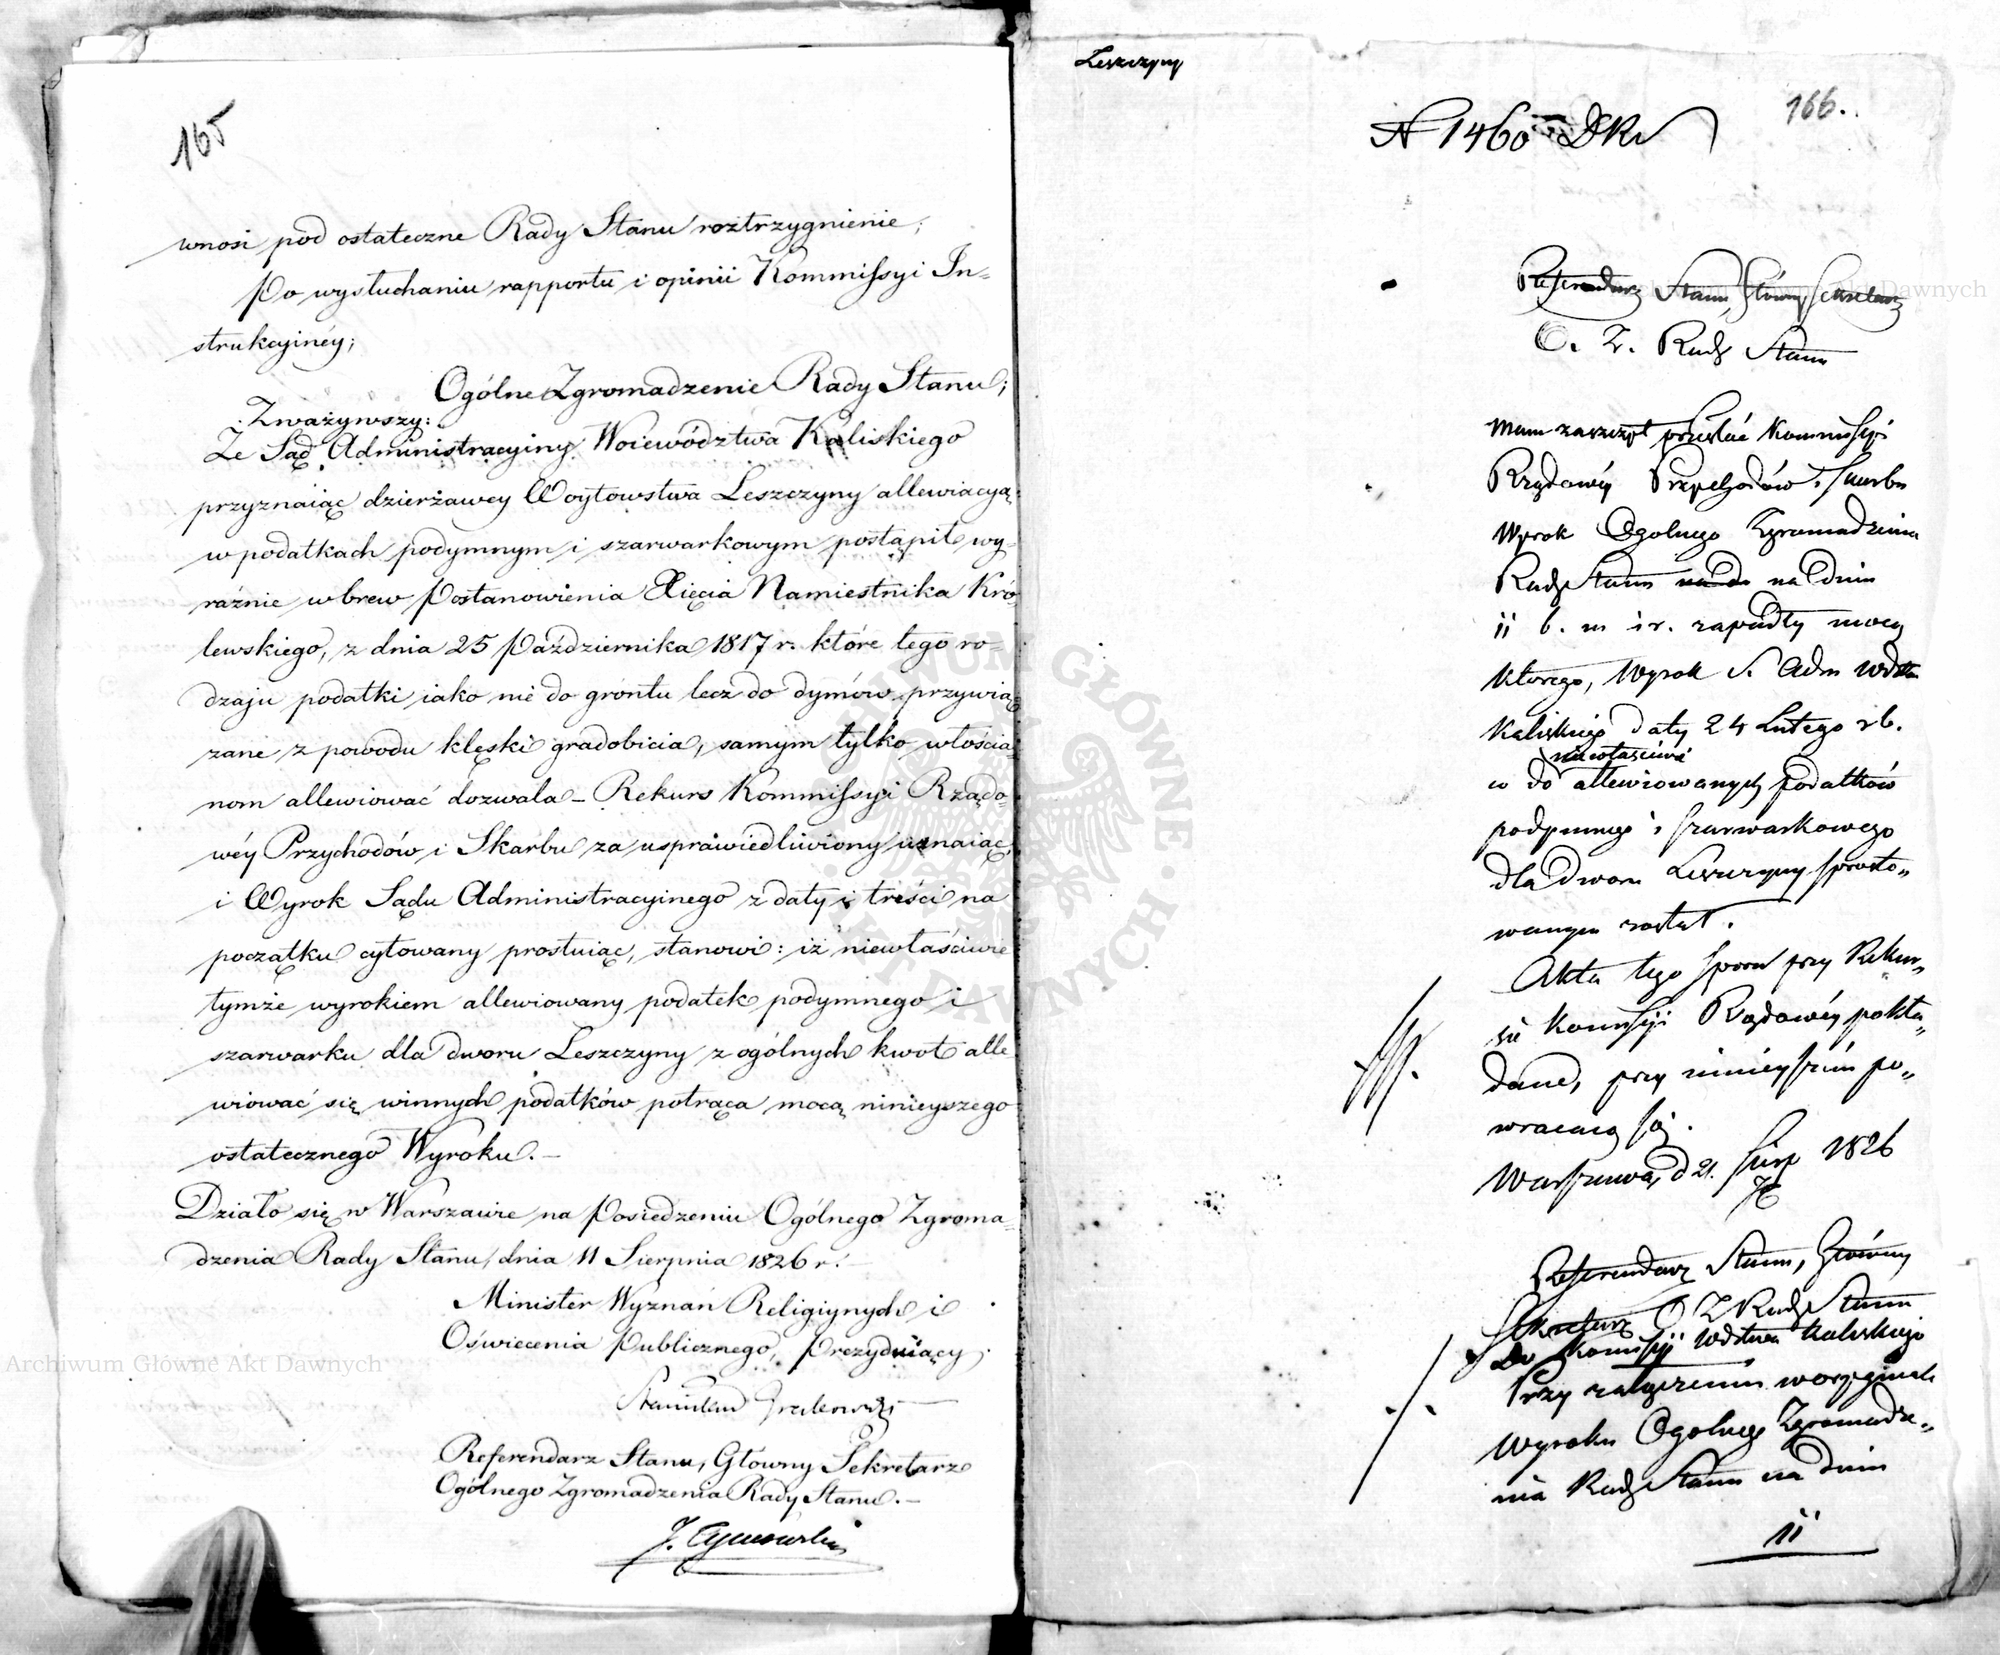 165
wnosi pod ostateczne Rady Stanu roztrzygnienie;
Po wysłuchaniu rapportu i opinii Kommissyi In=
strukcyinéy;
Ogólne Zgromadzenie Rady Stanu;
Zważywszy:
Że Sąd Administracyiny Woiewództwa Kaliskiego
przyznaiąc dzierżawcy Woytowstwa Leszczyny allewiacyą
w podatkach podymnym i szarwarkowym postąpił wy=
raźnie wbrew Postanowienia Xięcia Namiestnika Kró=
lewskiego, z dnia 25 Października 1817 r. które tego ro=
dzaju podatki iako nie do gróntu lecz do dymów przywią
zane z powodu klęski gradobicia, samym tylko włościa=
nom allewiować dozwala – Rekurs Kommissyi Rządo=
wéy Przychodów i Skarbu za usprawiedliwiony uznaiąc,
i Wyrok Sądu Administracyinego z daty i treści na
początku cytowany prostuiąc, stanowi: iż niewłaściwie
tymże wyrokiem allewiowany podatek podymnego i
szarwarku dla dworu Leszczyny z ogólnych kwot alle
wiować się winnych podatków potrąca mocą ninieyszego
ostatecznego Wyroku. –
Działo się w Warszawie na Posiedzeniu Ogólnego Zgroma=
dzenia Rady Stanu, dnia 11 Sierpnia 1826 r. –
Minister Wyznań Religiynych i
Oświecenia Publicznego, Prezyduiący.
Stanisław Grabowski
Referendarz Stanu, Głowny Sekretarz
Ogólnego Zgromadzenia Rady Stanu. –
J.
Leszczyny
166.
N 1460 DKr
Referendarz Stanu, Główny Sekretarz
O. Z. Rady Stanu
Mam zaszczyt przesłać Kommissyi
Rządowéy Przychodów i Skarbu
Wyrok Ogolnego Zgromadzenia
Rady Stanu na dniu
11 b. m i r. zapadły mocą
którego, Wyrok S. Adm Wdztwa
Kaliskiego daty 24 Lutego r b.
niewłaściwie
w do allewiowanych podatków
podymnego i szarwarkowego
dla Dworu Leszczyny sprosto=
wanym został.
Akta tego sporu przy Rekur=
sie Komissyi Rządowéy pokła=
dane, przy ninieyszém po=
wracaią się.
Warszawa, d 21. Sierp 1826
Referendarz Stanu, Główny
Sekretarz O Z Rady Stanu
Do Komissyi Wdztwa Kaliskiego
Przy załączeniu w oryginale
Wyroku Ogolnego Zgromadze=
nia Rady Stanu na dniu
11
Archiwum Główne Akt Dawnych
Archiwum Główne Akt Dawnych
ARCHIWUM GŁÓWNE AKT DAWNYCH